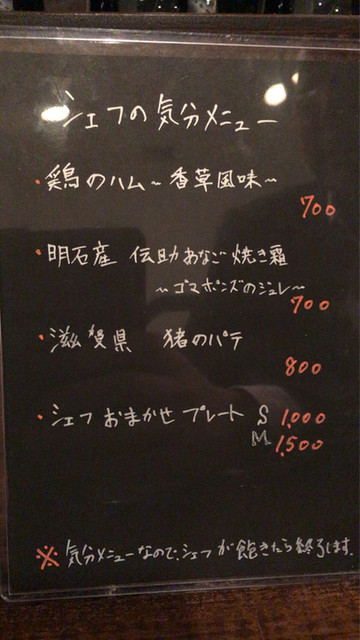 シェフの気分メニュー
・鶏のハム~香草風味~
700
・明石産 伝助あなご焼き霜
~ゴマポンズのジュレ~
700
・滋賀県 猪のパテ
800
・シェフおまかせプレート S 1,000
M 1,500
※気分メニューなので、シェフが飽きたら終了します。